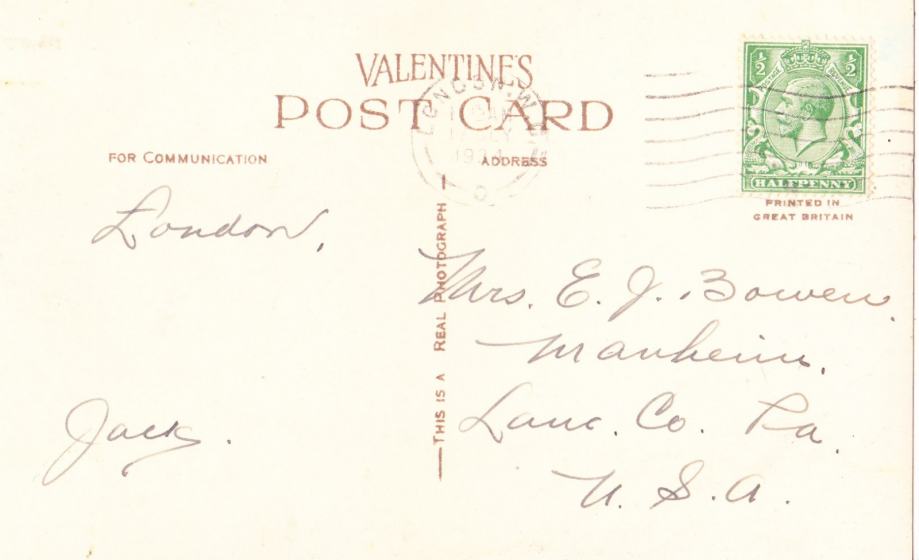 VALENTINE'S
POST CARD
FOR COMMUNICATION
ADDRESS
LONDON. W.
½ ½
POSTAGE REVENUE
HALFPENNY
PRINTED IN
GREAT BRITAIN
THIS IS A REAL PHOTOGRAPH
London,
Jack.
Mrs. E. J. Bowen.
Manheim.
Lanc. Co. Pa.
U. S. A.